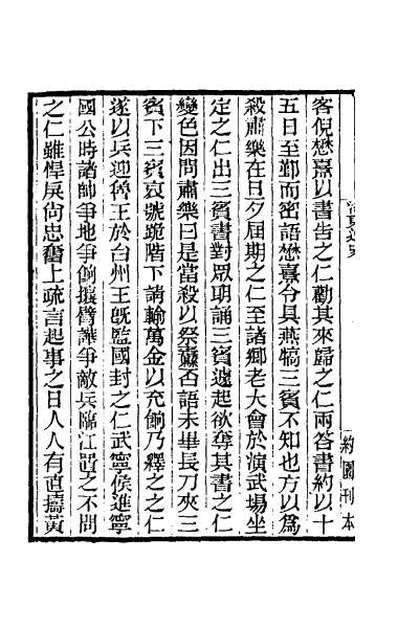 客倪懋熹以書告之仁勸其來歸之仁兩答書約以十
五日至鄞而密語懋熹令具燕犒三賓不知也方以爲
殺肅樂在旦夕屆期之仁至諸鄉老大會於演武場坐
定之仁出三賓書對眾朗誦三賓遽起欲奪其書之仁
變色因問肅樂曰是當殺以祭纛否語未畢長刀夾三
賓下三賓哀號跪階下請輸萬金以充餉乃釋之之仁
遂以兵迎魯王於台州王旣監國封之仁武寧侯進寧
國公時諸帥爭地爭餉攘臂譁爭敵兵臨江置之不問
之仁雖悍戾尙忠奮上疏言起事之日人人有直擣黃
約園刊本